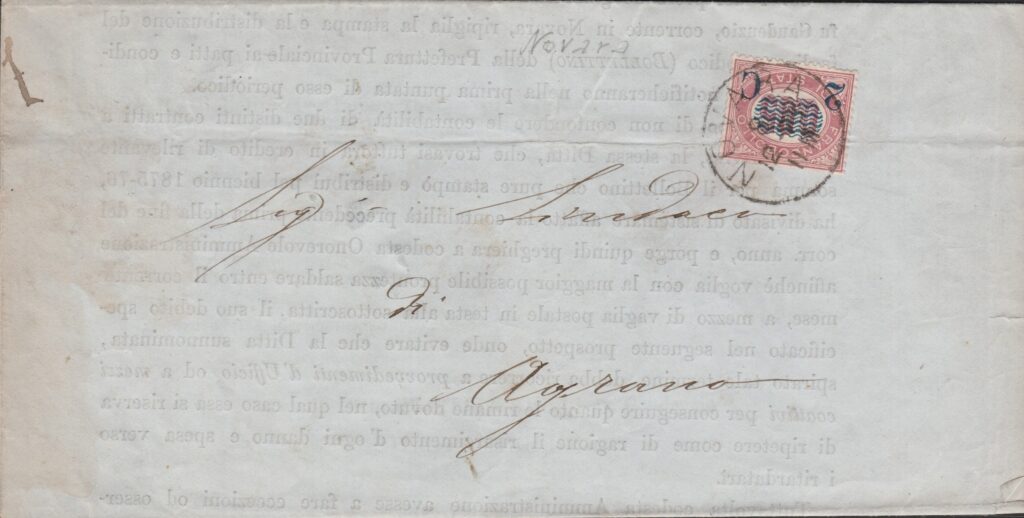 Novara
2 C
NOVARA
Sigr Sindaco
di
Agrano
fu Gaudenzio, corrente in Novara, ripiglia la stampa e la distribuzione del
(BOLLETTINO) della Prefettura Provinciale ai patti e condi-
notificheranno nella prima puntata di esso periodico.
di non confondere le contabilità di due distinti contratti a
la stessa Ditta, che trovasi tuttora in credito di rilevante
somma per il Bollettino che pure stampò e distribuì pel biennio 1875-76,
ha divisato di sistemare contabilità precedente prima della fine del
corr. anno, e porge quindi preghiera a codesta Onorevole Amministrazione
affinchè voglia con la maggior possibile prontezza saldare entro il corrente
mese, a mezzo di vaglia postale in testa alla sottoscritta, il suo debito spe-
cificato nel seguente prospetto, onde evitare che la Ditta sunnominata,
spirato ricorrere a provvedimenti d'Ufficio od a mezzi
coattivi per conseguire quanto le rimane dovuto, nel qual caso essa si riserva
di ripetere come di ragione il risarcimento d'ogni danno e spesa verso
i ritardatari.
codesta Amministrazione avesse a fare eccezioni od osser-